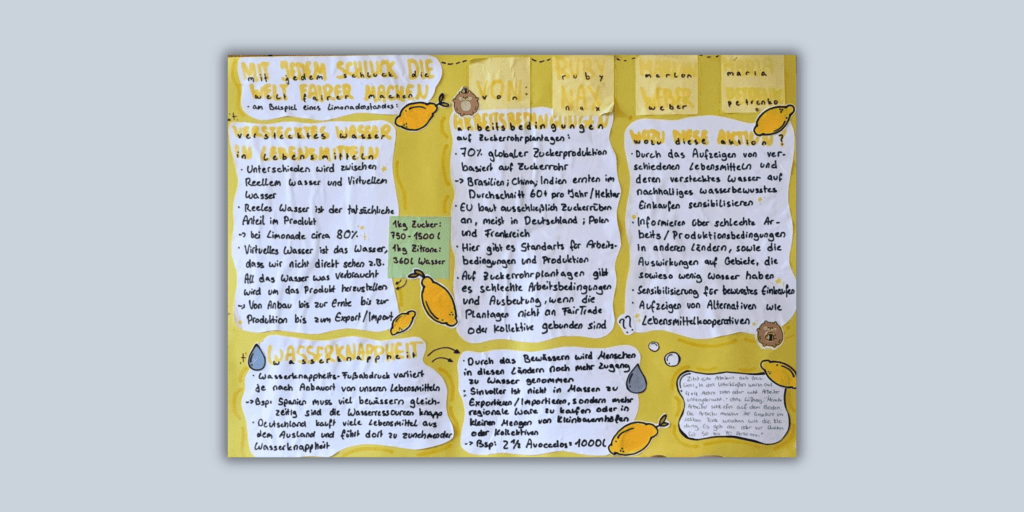 mit jedem Schluck die
Welt fairer machen
· am Beispiel eines Limonadenstandes:
von:
ruby
nax
marlon
weber
maria
petrenko
verstecktes Wasser
in Lebensmitteln
· Unterschieden wird zwischen
Reellem Wasser und Virtuellem
Wasser
· Reeles Wasser ist der tatsächliche
Anteil im Produkt
-> bei Limonade circa 80%
· Virtuelles Wasser ist das Wasser,
dass wir nicht direkt sehen z.B.
All das Wasser was verbraucht
wird um das Produkt herzustellen
-> Von Anbau bis zur Ernte bis zur
Produktion bis zum Export/Import
1kg Zucker:
750-1500 l
1kg Zitrone:
360l Wasser
arbeitsbedingungen
auf Zuckerrohrplantagen:
· 70% globaler Zuckerproduktion
basiert auf Zuckerrohr
-> Brasilien; China; Indien ernten im
Durchschnitt 60t pro Jahr/Hektar
· EU baut ausschließlich Zuckerrüben
an, meist in Deutschland; Polen
und Frankreich
· Hier gibt es Standarts for Arbeits-
bedingungen und Produktion
· Auf Zuckerrohrplantagen gibt
es schlechte Arbeitsbedingungen
und Ausbeutung, wenn die
Plantagen nicht an FairTrade
oder Kollektive gebunden sind
wozu diese aktion?
· Durch das Aufzeigen von ver-
schiedenen Lebensmitteln und
deren verstecktes Wasser auf
nachhaltiges wasserbewusstes
Einkaufen sensibilisieren
· Informieren über schlechte Ar-
beits/Produktionsbedingungen
In anderen Ländern, sowie die
Auswirkungen auf Gebiete, die
sowieso wenig Wasser haben
· Sensibilisierung für bewusstes Einkaufen
· Aufzeigen von Alternativen wie
Lebensmittelkooperativen
??
Wasserknappheit
· Wasserknappheits-Fußabdruck variiert
je nach Anbauort von unseren Lebensmitteln
-> Bsp: Spanien muss viel bewässern gleich-
zeitig sind die Wasserressourcen knapp
· Deutschland kauft viele Lebensmittel aus
dem Ausland und führt dort zu zunehmender
Wasserknappheit
· Durch das Bewässern wird Menschen
in diesen Ländern noch mehr Zugang
zu Wasser genommen
· Sinvoller ist nicht in Massen zu
Exportieren/Importieren, sondern mehr
regionale Ware zu kaufen oder in
kleinen Mengen von Kleinbauernhöfen
oder Kollektiven
-> Bsp: 2 1/2 Avocados = 1000l